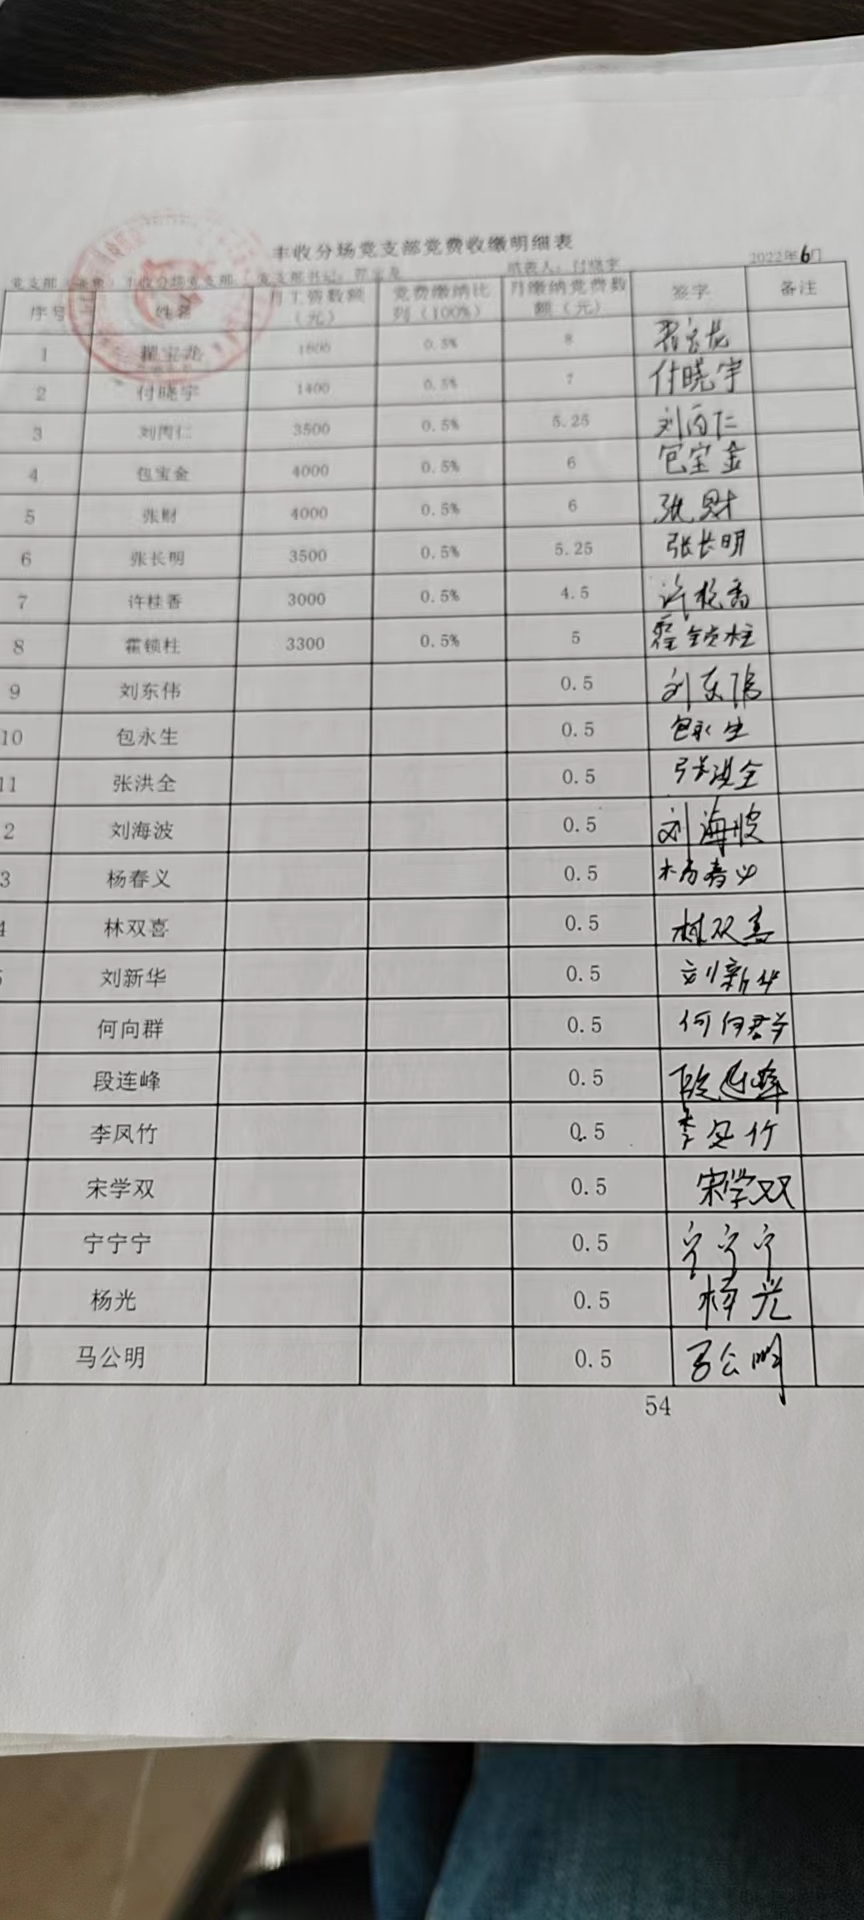 丰收分场党支部党费收缴明细表
2022年6月
党支部 丰收分场党支部 党支部书记： 填表人：付晓宇
序号 姓名 月工资数额（元） 党费缴纳比列（100%） 月缴纳党费数额（元） 签字 备注
1 翟宝龙 1600 0.5% 8 翟宝龙
2 付晓宇 1400 0.5% 7 付晓宇
3 刘丙仁 3500 0.5% 5.25 刘丙仁
4 包宝金 4000 0.5% 6 包宝金
5 张财 4000 0.5% 6 张财
6 张长明 3500 0.5% 5.25 张长明
7 许桂香 3000 0.5% 4.5 许桂香
8 霍锁柱 3300 0.5% 5 霍锁柱
9 刘东伟 0.5 刘东伟
10 包永生 0.5 包永生
11 张洪全 0.5 张洪全
2 刘海波 0.5 刘海波
3 杨春义 0.5 杨春义
4 林双喜 0.5 林双喜
刘新华 0.5 刘新华
何向群 0.5 何向群
段连峰 0.5 段连峰
李凤竹 0.5 李凤竹
宋学双 0.5 宋学双
宁宁宁 0.5 宁宁宁
杨光 0.5 杨光
马公明 0.5 马公明
54